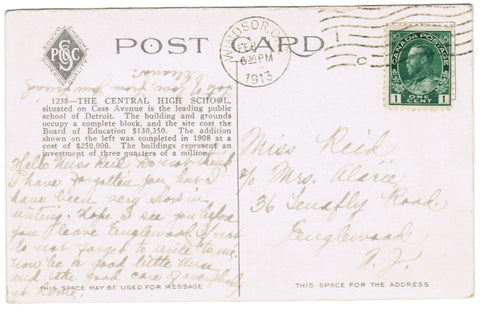 POST CARD
WINDSOR, ONT.
FEB
6 30 PM
1913
CANADA POSTAGE
1 ONE CENT 1
1238—THE CENTRAL HIGH SCHOOL,
situated on Cass Avenue is the leading public
school of Detroit. The building and grounds
occupy a complete block, and the site cost the
Board of Education $130,350. The addition
shown on the left was completed in 1908 at a
cost of $250,000. The buildings represent an
investment of three quarters of a million.
Hello Miss Reid, Do not think
I have forgotten you but I
have been very slow in
writing. Hope I see you before
you leave Englewood. If not
do not forget to write to me.
Now be a good little nurse
and take good care of everybody
at home.
lots of love from your friend
Eleanor
THIS SPACE MAY BE USED FOR MESSAGE
Miss Reid
c/o Mrs.
36 Tenafly Road
Englewood
N. J.
THIS SPACE FOR THE ADDRESS